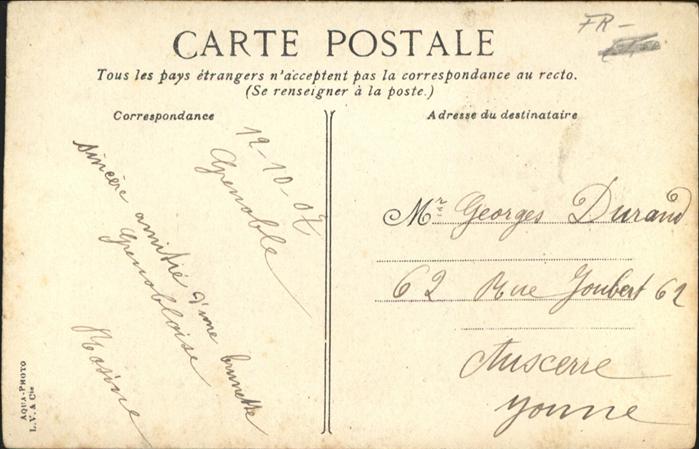 FR-
CARTE POSTALE
Tous les pays étrangers n'acceptent pas la correspondance au recto.
(Se renseigner à la poste.)
Correspondance
Adresse du destinataire
12-10-07
Grenoble
sincère amitié d'une brunette
Grenobloise
Rosine
Mr Georges Durand
62 Rue Joubert 62
Auxerre
Yonne
AQUA-PHOTO
L.V. & Cie